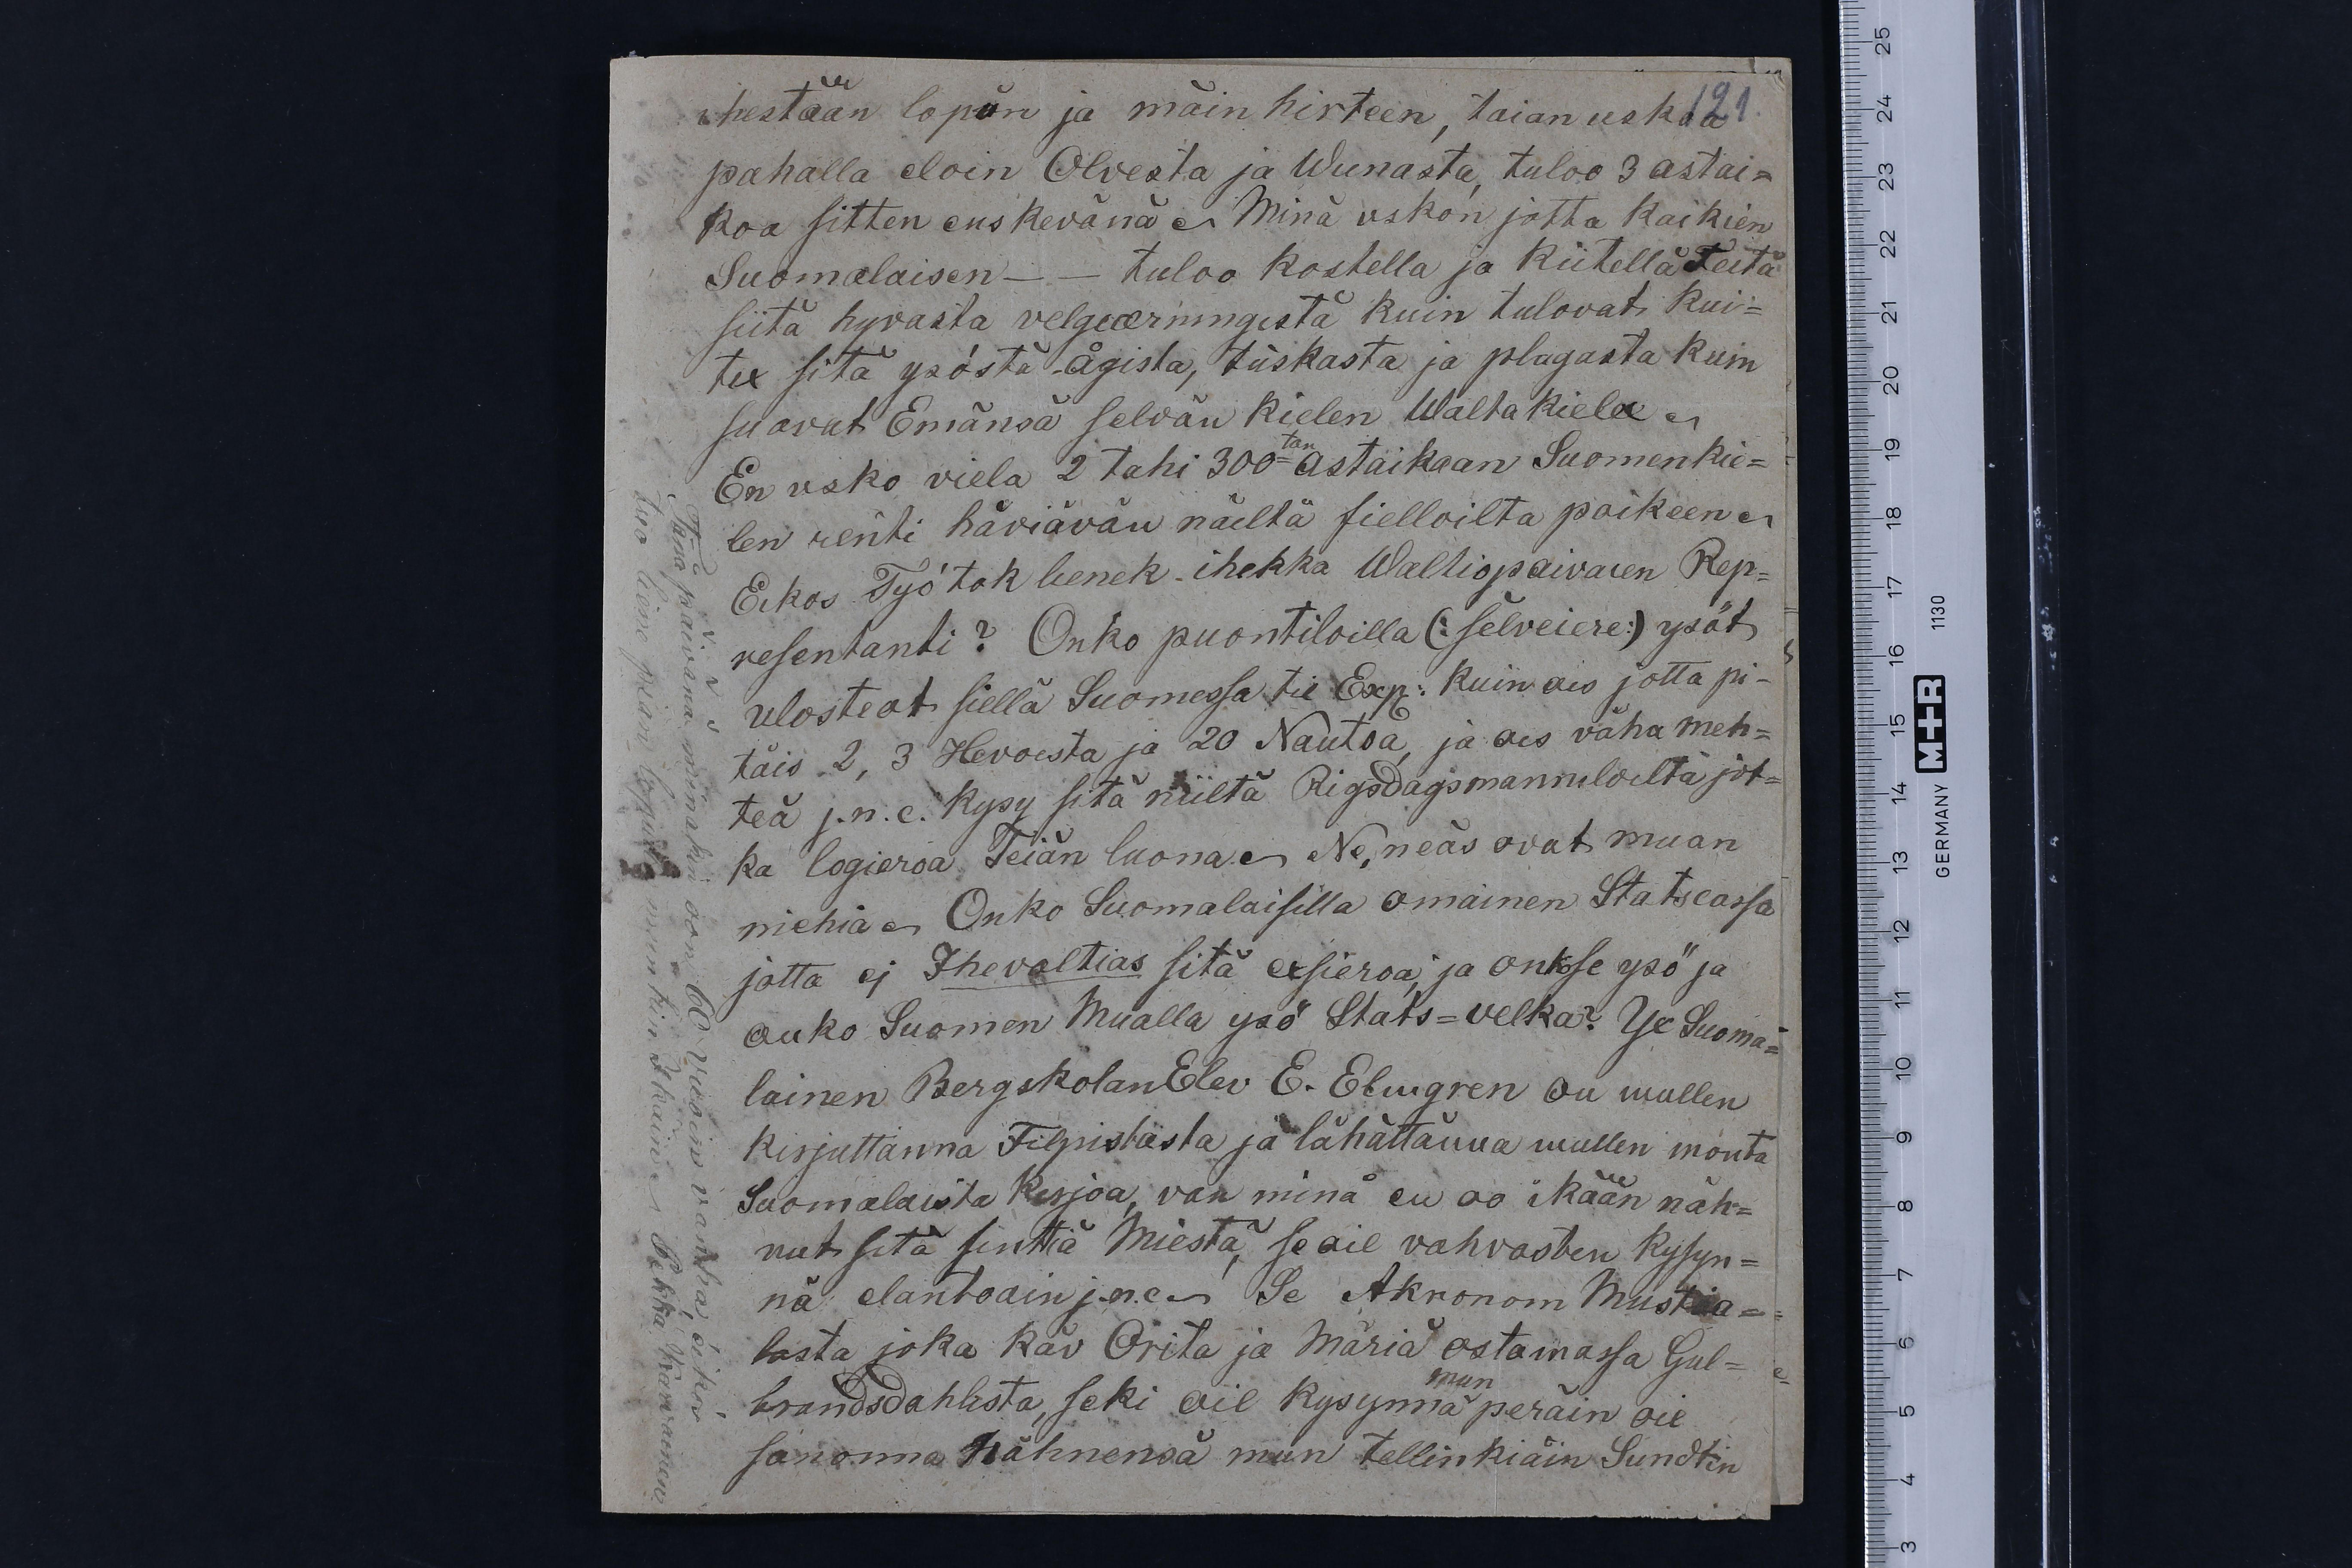 121.
ihestään lopun ja mäin hirteen, taian uskoa
pahalla eloin Olvesta ja Wunasta, tuloo 3 astai=
koa sitten ens kevänä Minä uskon jotta kaikien
Suomalaisen – – tuloo kostella ja kiitellä Teitä
siitä hyvästa velgærningistä kuin tulovat kui=
tex sitä ysöstä ågista, tuskasta ja plagasta kuin
suavat Emänsä selvän kielen Waltakielex
En usko viela 2 tahi 300=tan astaikaan Suomenkie=
len renti häviävän näiltä fielloilta poikeen
Eikos Työ tok lienek ihekka Waltiopaivaien Rep=
resentanti? Onko puontiloilla (: selveiere:) ysöt
ulosteot siellä Suomessa til Exp: kuin ois jotta pi-
täis 2, 3 Hevoista ja 20 Nautoa, ja ois väha meh=
teä j.n.e. kysy sitä niiltä Rigsdagsmanniloilta jot=
ka logieroa Teiän luona. Ne, neäs ovat muan
miehiä Onko Suomalaisilla omainen Statscassa
jotta ej Ihevaltias sitä exsieroa, ja onkse ysö ja
onko Suomen Mualla ysö Stats=velka? Yx Suoma=
lainen Bergskolan Elev E. Elmgren on mullen
kirjuttanna Filpistästa ja lähättänna mullen monta
Suomalaista kirjoa, van minä en oo ikään näh=
nut sitä sinttiä Miestä, se oil vahvasten kysyn=
nä elantoain j.n.e. Se Akronom Mustia=
lasta joka käv Orita ja Märiä ostamassa Gul=
brandsdahlista, seki oil kysynnä mun peräin oil
sanonna Nähnensä mun tellinkiäin Sundtin
Tänä päivänä minähin oon 60 Vuoin vanha, eikä
tuo liene pian loput munkin Ikäin Pekka Karvainen